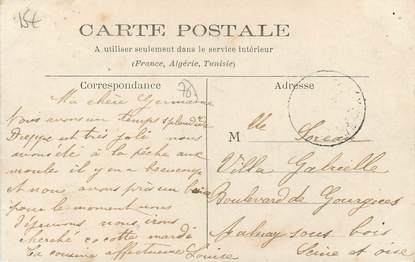 15f
CARTE POSTALE
A utiliser seulement dans le service intérieur
(France, Algérie, Tunisie)
Correspondance
Adresse
Ma chère Germaine
Nous avons un temps splendide
Dieppe est très joli nous
avons été à la pêche aux
moules il y en a beaucoup
et nous avons pris un bain
pour le moment nous
déjeunons nous irons
cherché cocotte mardi
Ta cousine affectueuse Louise
M lle
Villa Gabrielle
Boulevard de Gourgues
Aulnay sous bois
Seine et oise